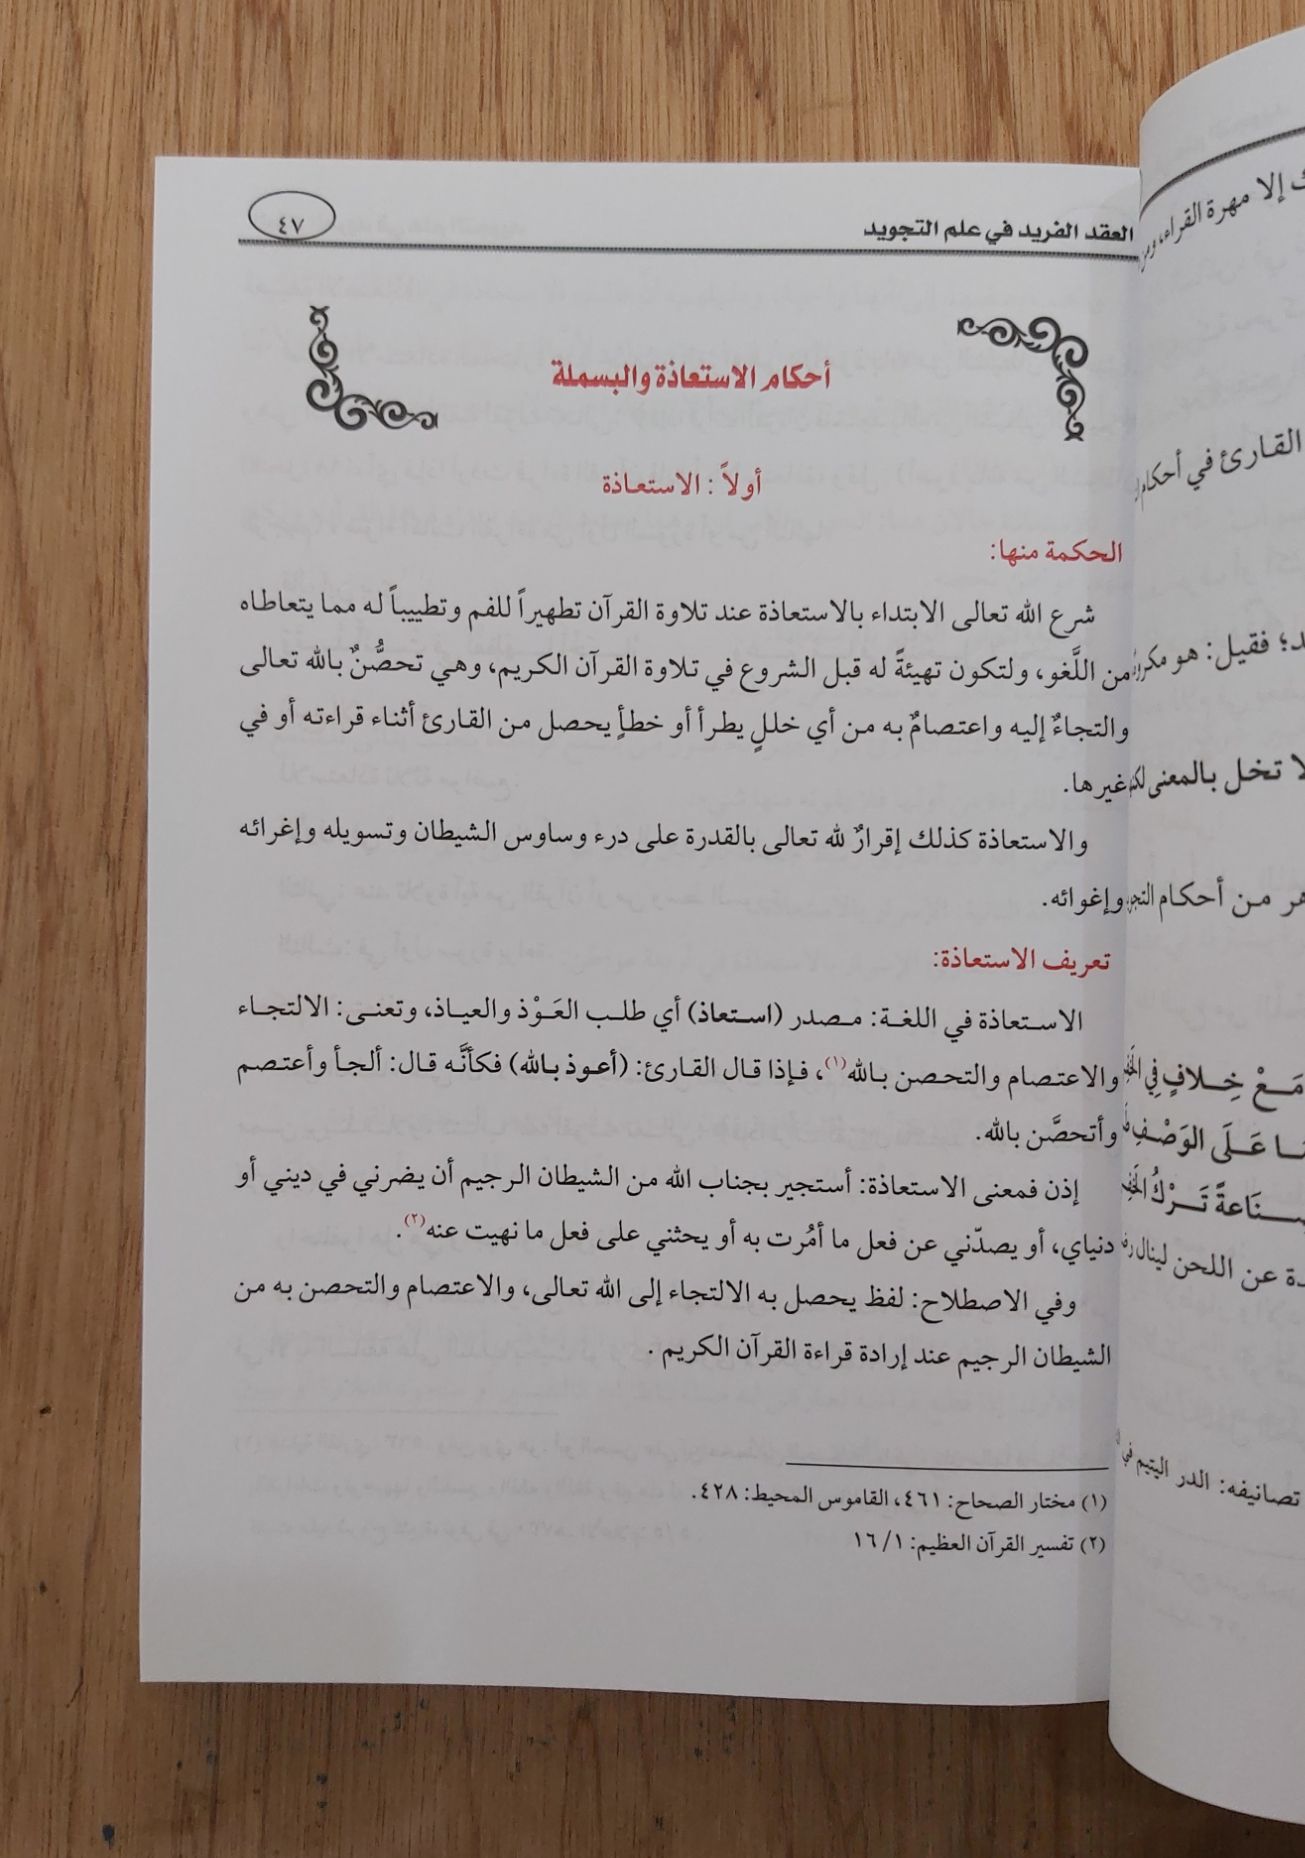 العقد الفريد في علم التجويد
٤٧
أحكام الاستعاذة والبسملة
أولاً : الاستعاذة
الحكمة منها:
شرع الله تعالى الابتداء بالاستعاذة عند تلاوة القرآن تطهيراً للفم وتطييباً له مما يتعاطاه
من اللَّغو، ولتكون تهيئةً له قبل الشروع في تلاوة القرآن الكريم، وهي تحصُّنٌ بالله تعالى
والتجاءٌ إليه واعتصامٌ به من أي خللٍ يطرأ أو خطأٍ يحصل من القارئ أثناء قراءته أو في
غيرها.
والاستعاذة كذلك إقرارٌ لله تعالى بالقدرة على درء وساوس الشيطان وتسويله وإغرائه
وإغوائه.
تعريف الاستعاذة:
الاستعاذة في اللغة: مصدر (استعاذ) أي طلب العَوْذ والعياذ، وتعنى: الالتجاء
والاعتصام والتحصن بالله(١)، فإذا قال القارئ: (أعوذ بالله) فكأنَّه قال: ألجأ وأعتصم
وأتحصَّن بالله.
إذن فمعنى الاستعاذة: أستجير بجناب الله من الشيطان الرجيم أن يضرني في ديني أو
دنياي، أو يصدّني عن فعل ما أمُرت به أو يحثني على فعل ما نهيت عنه(٢).
وفي الاصطلاح: لفظ يحصل به الالتجاء إلى الله تعالى، والاعتصام والتحصن به من
الشيطان الرجيم عند إرادة قراءة القرآن الكريم .
(١) مختار الصحاح: ٤٦١، القاموس المحيط: ٤٢٨.
(٢) تفسير القرآن العظيم: ١/ ١٦
إلا مهرة القراء،
القارئ في أحكام
فقيل: هو
تخل بالمعنى
من أحكام
مَعْ خِلافٍ فِي
عَلَى الوَصْفِ
تَرْكُ
عن اللحن لينال
تصانيفه: الدر اليتيم في